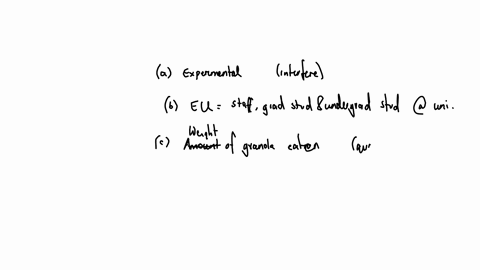 (a) Expermental (interfere)
(b) EU = staff, grad stud & undergrad stud @ uni.
Weight
(c) Amount of granola eaten (qu